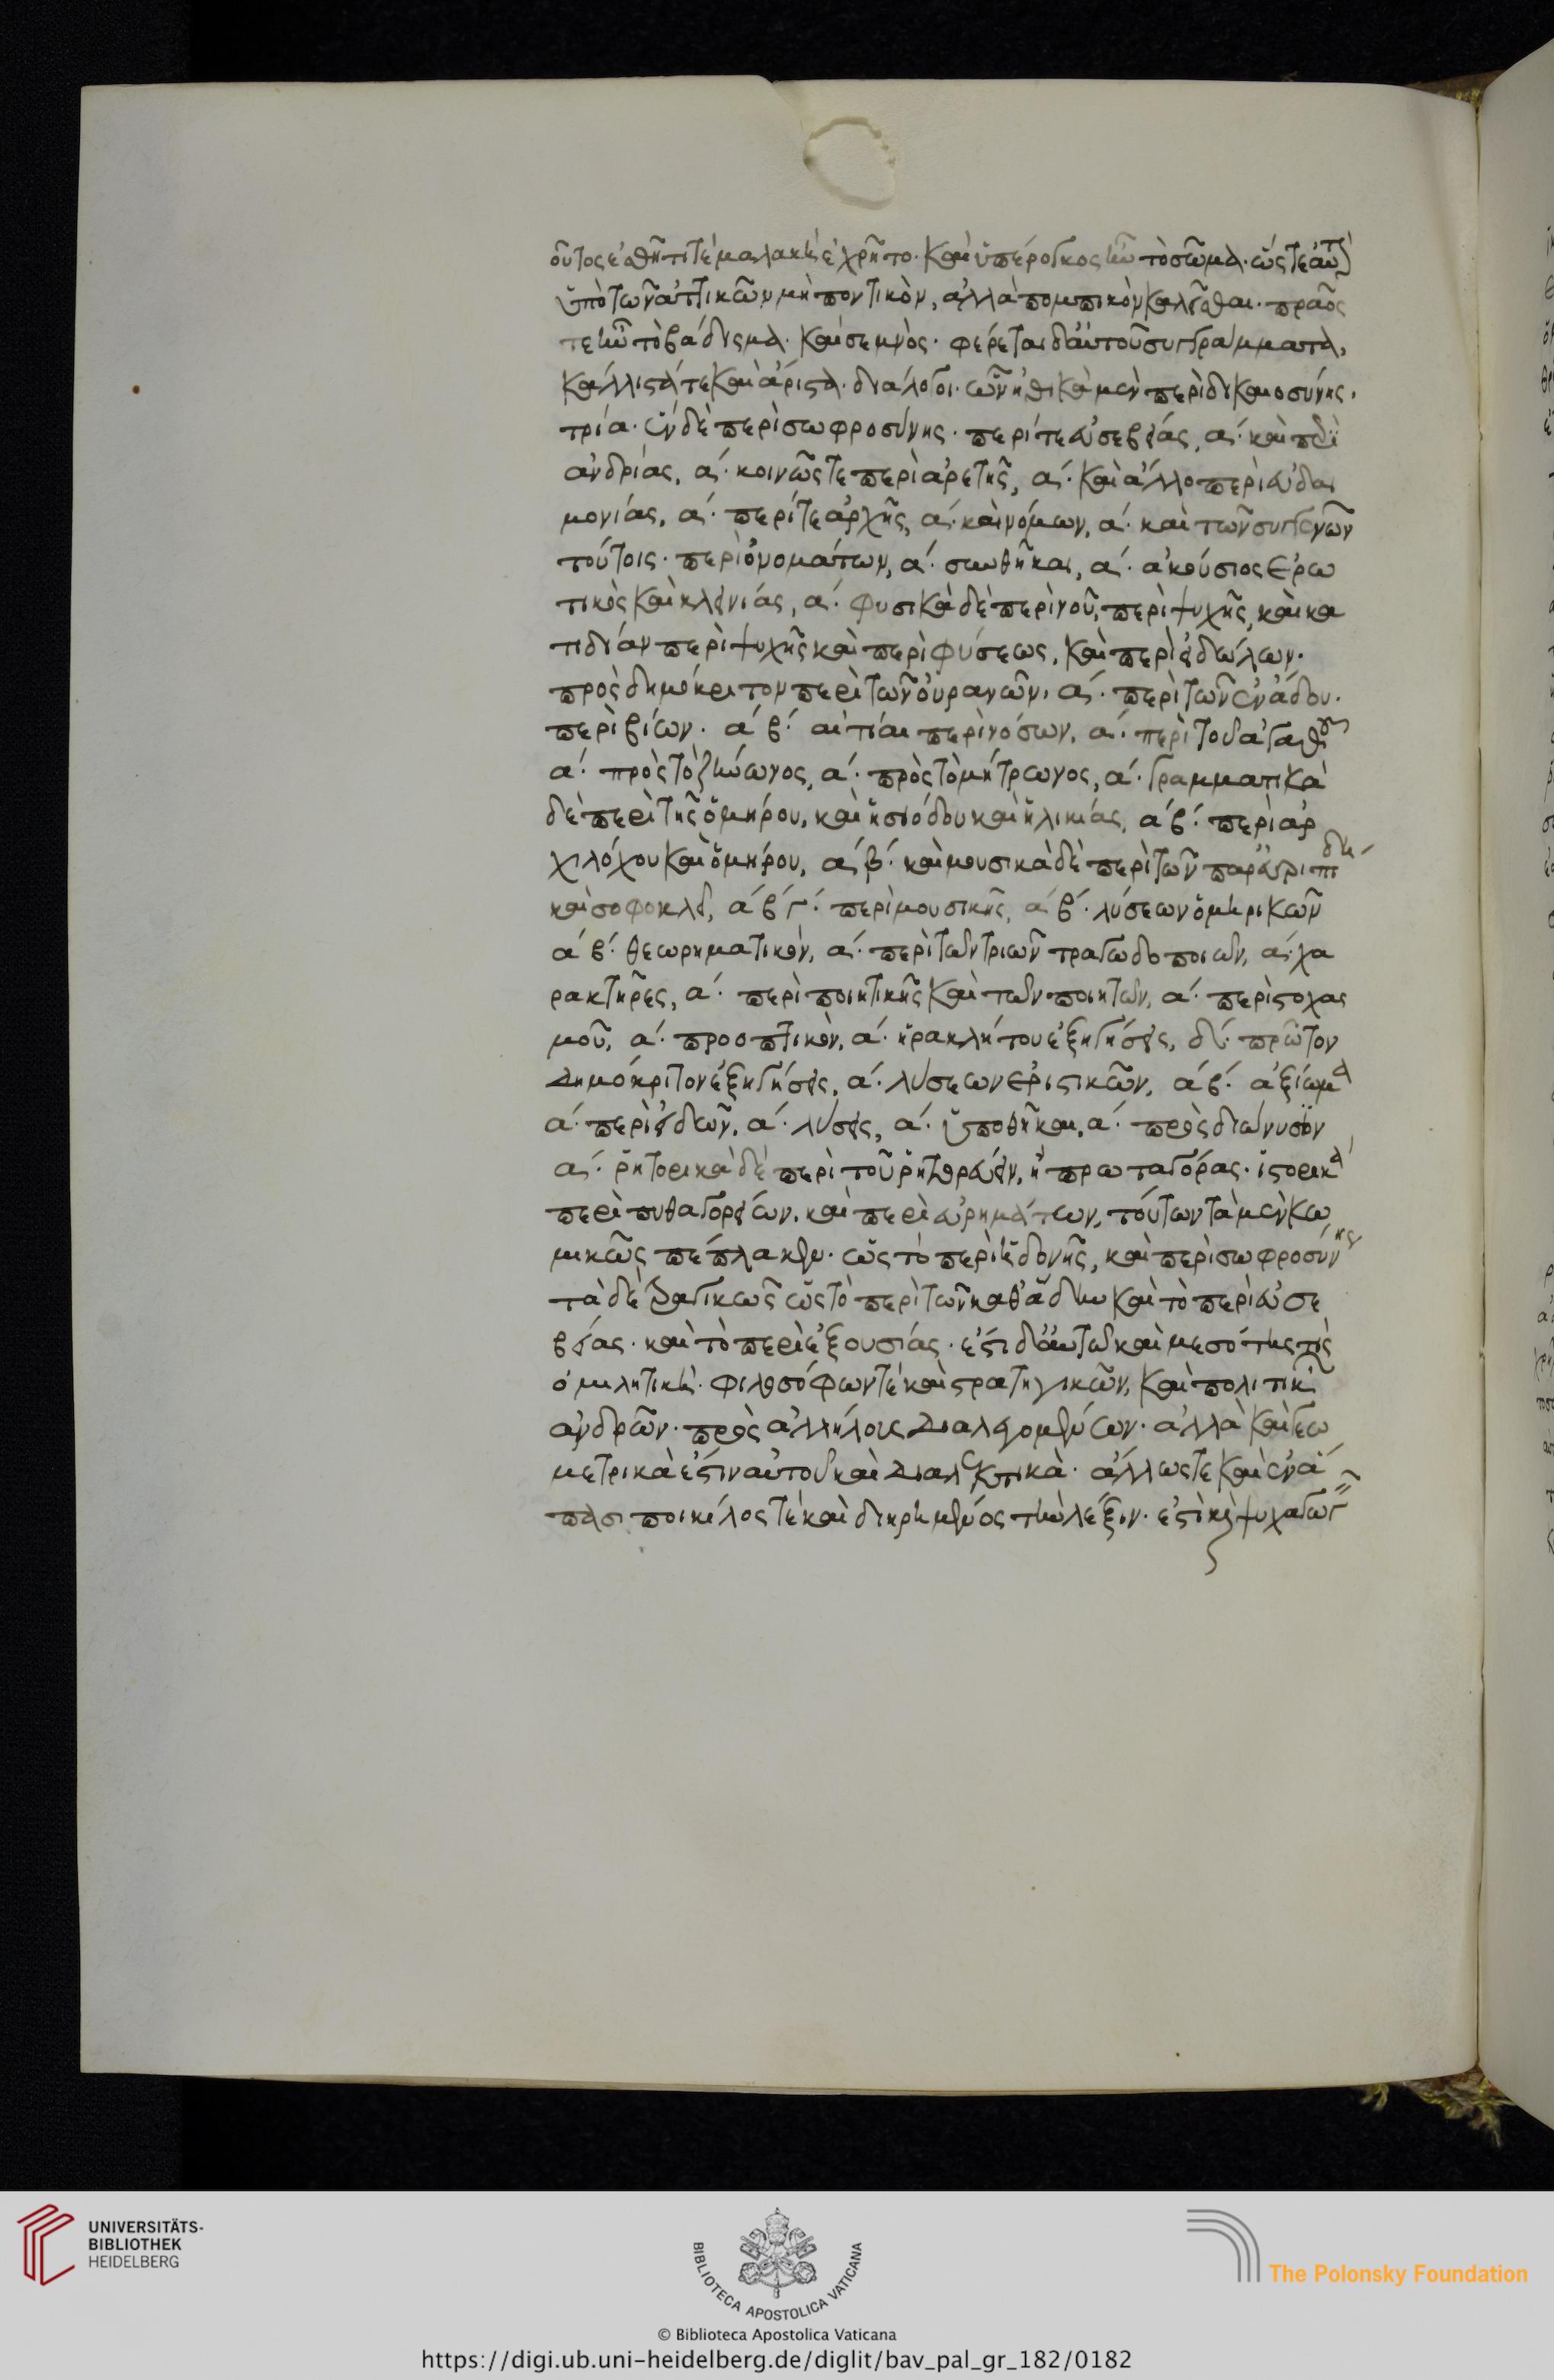 οὗτος ἐσθῆτί τε μαλακῇ ἐχρῆτο· καὶ ὑπέρογκος ἦν τὸ σῶμα· ὥς τε αὐτὸν
ὑπὸ τῶν ἀττικῶν μὴ ποντικὸν, ἀλλὰ πομπικὸν καλεῖσθαι· πρᾶος
τε ἦν τὸ βάδισμα· καὶ σεμνὸς· φέρεται δ' αὐτοῦ συγγράμματα,
κάλλιστά τε καὶ ἄριστα· διάλογοι· ὧν ἠθικὰ μὲν περὶ δικαιοσύνης,
τρία· ἓν δὲ περὶ σωφροσύνης· περί τε εὐσεβείας, α· καὶ περὶ
ἀνδρίας, α· κοινῶς τε περὶ ἀρετῆς, α· καὶ ἄλλο περὶ εὐδαι
μονίας, α· περί τε ἀρχῆς, α· καὶ νόμων, α· καὶ τῶν συγγενῶν
τούτοις· περὶ ὀνομάτων, α· συνθῆκαι, α· ἀκούσιος ἐρω
τικὸς καὶ κλεινίας, α· φυσικὰ δὲ περὶ νοῦ, περὶ ψυχῆς, καὶ κα
τιδίαν περὶ ψυχῆς καὶ περὶ φύσεως, καὶ περὶ εἰδώλων·
πρὸς δημόκριτον περὶ τῶν οὐρανῶν, α· περὶ τῶν ἐν ἅδου·
περὶ βίων· α β· αἰτίαι περὶ νόσων, α· περὶ τοῦ ἀγαθοῦ
α· πρὸς τὸ ζήνωνος, α· πρὸς τὸ μήτρωνος, α· γραμματικὰ
δὲ περὶ τῆς ὁμήρου, καὶ ἡσιόδου καὶ ἡλικίας, α β· περὶ ἀρ
χιλόχου καὶ ὁμήρου, α β· καὶ μουσικὰ δὲ περὶ τῶν παρ' εὐριπίδῃ
καὶ σοφοκλεῖ, α β γ· περὶ μουσικῆς, α β· λύσεων ὁμηρικῶν
α β· θεωρηματικὸν, α· περὶ τῶν τριῶν τραγωδοποιῶν, α· χα
ρακτῆρες, α· περὶ ποιητικῆς καὶ τῶν ποιητῶν, α· περὶ στοχας
μοῦ, α· προοπτικὸν, α· ἡρακλήτου ἐξηγήσεις, δ· πρῶτον
δημόκριτον ἐξηγήσεις, α· λύσεων ἐριστικῶν, α β· ἀξίωμα
α· περὶ εἰδῶν, α· λύσεις, α· ὑποθῆκαι, α· πρὸς διώνυσιον
α· ῥητορικὰ δὲ περὶ τοῦ ῥητορεύειν, ἢ πρωταγόρας· ἱστορικὰ
περὶ πυθαγορείων, καὶ περὶ εὑρημάτων, τούτων τὰ μὲν κω
μικῶς πέπλακεν· ὡς τὸ περὶ ἡδονῆς, καὶ περὶ σωφροσύνης
τὰ δὲ τραγικῶς ὡς τὸ περὶ τῶν καθ' ἅδην καὶ τὸ περὶ εὐσε
βείας· καὶ τὸ περὶ ἐξουσίας· ἔστι δ' αὐτῶ καὶ μεσότης τὶς
ὁμιλητικὴ· φιλοσόφων τὲ καὶ στρατηγικῶν, καὶ πολιτικῶν
ἀνδρῶν· πρὸς ἀλλήλους διαλεγομένων· ἀλλὰ καὶ γεω
μετρικὰ ἐστὶν αὐτοῦ καὶ διαλεκτικὰ· ἄλλως τε καὶ ἐν ἅ
πασι ποικίλος τὲ καὶ διηρημένος τὴν λέξιν· ἐστὶ καὶ ψυχαγωγεῖν
UNIVERSITÄTS-
BIBLIOTHEK
HEIDELBERG
BIBLIOTECA APOSTOLICA VATICANA
The Polonsky Foundation
© Biblioteca Apostolica Vaticana
https://digi.ub.uni-heidelberg.de/diglit/bav_pal_gr_182/0182